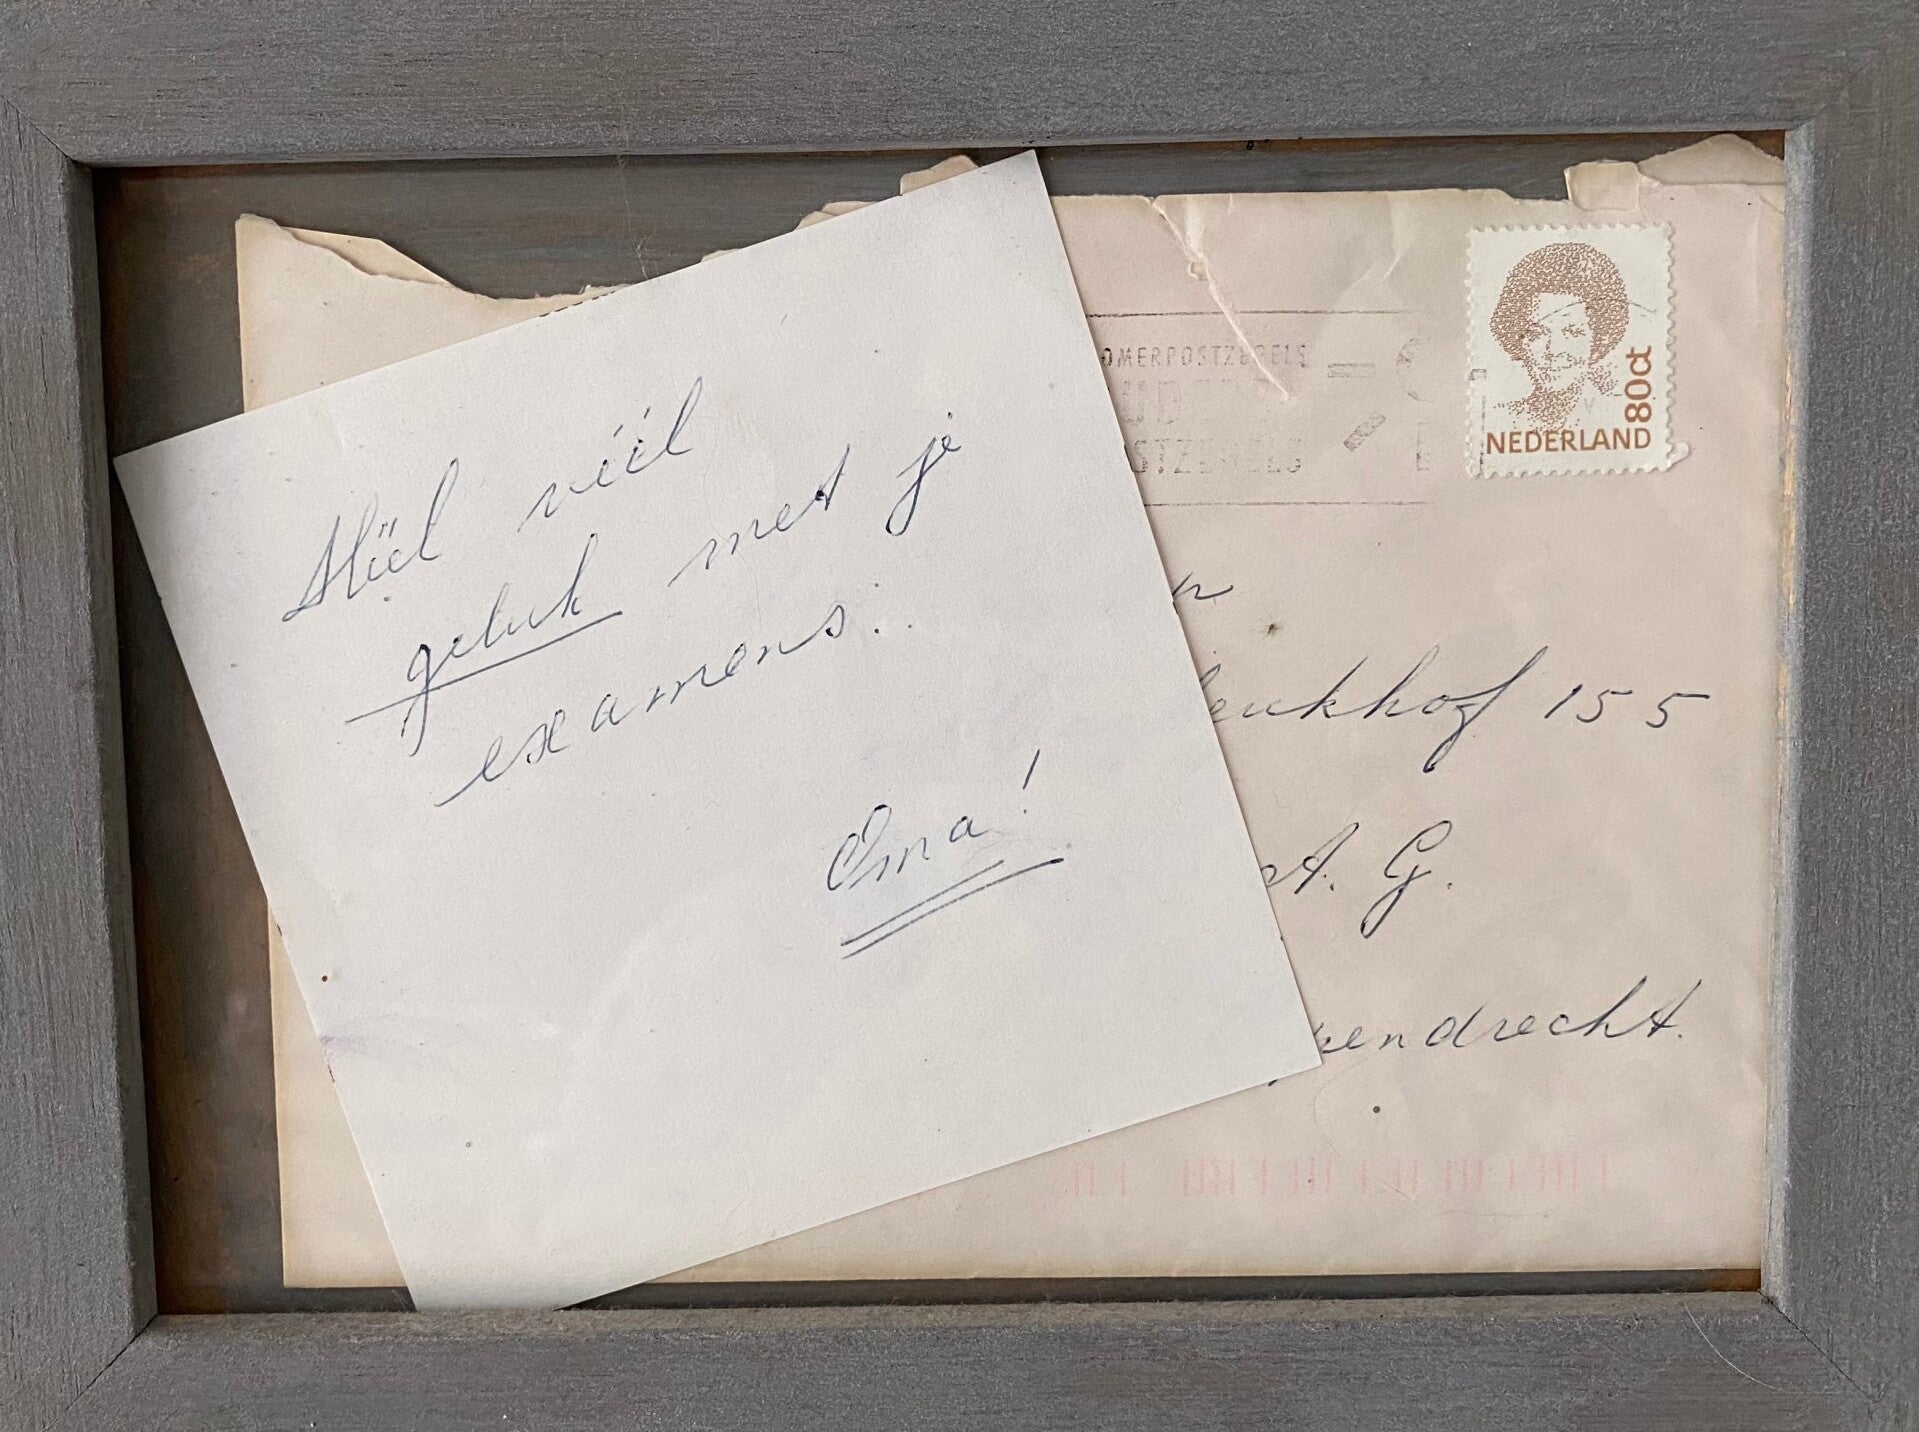 Hiel véél
geluk met je
examens...
Oma!
OMERPOSTZEGELS
STZEGELS
80ct
NEDERLAND
eukhof 155
A. G.
endrecht.